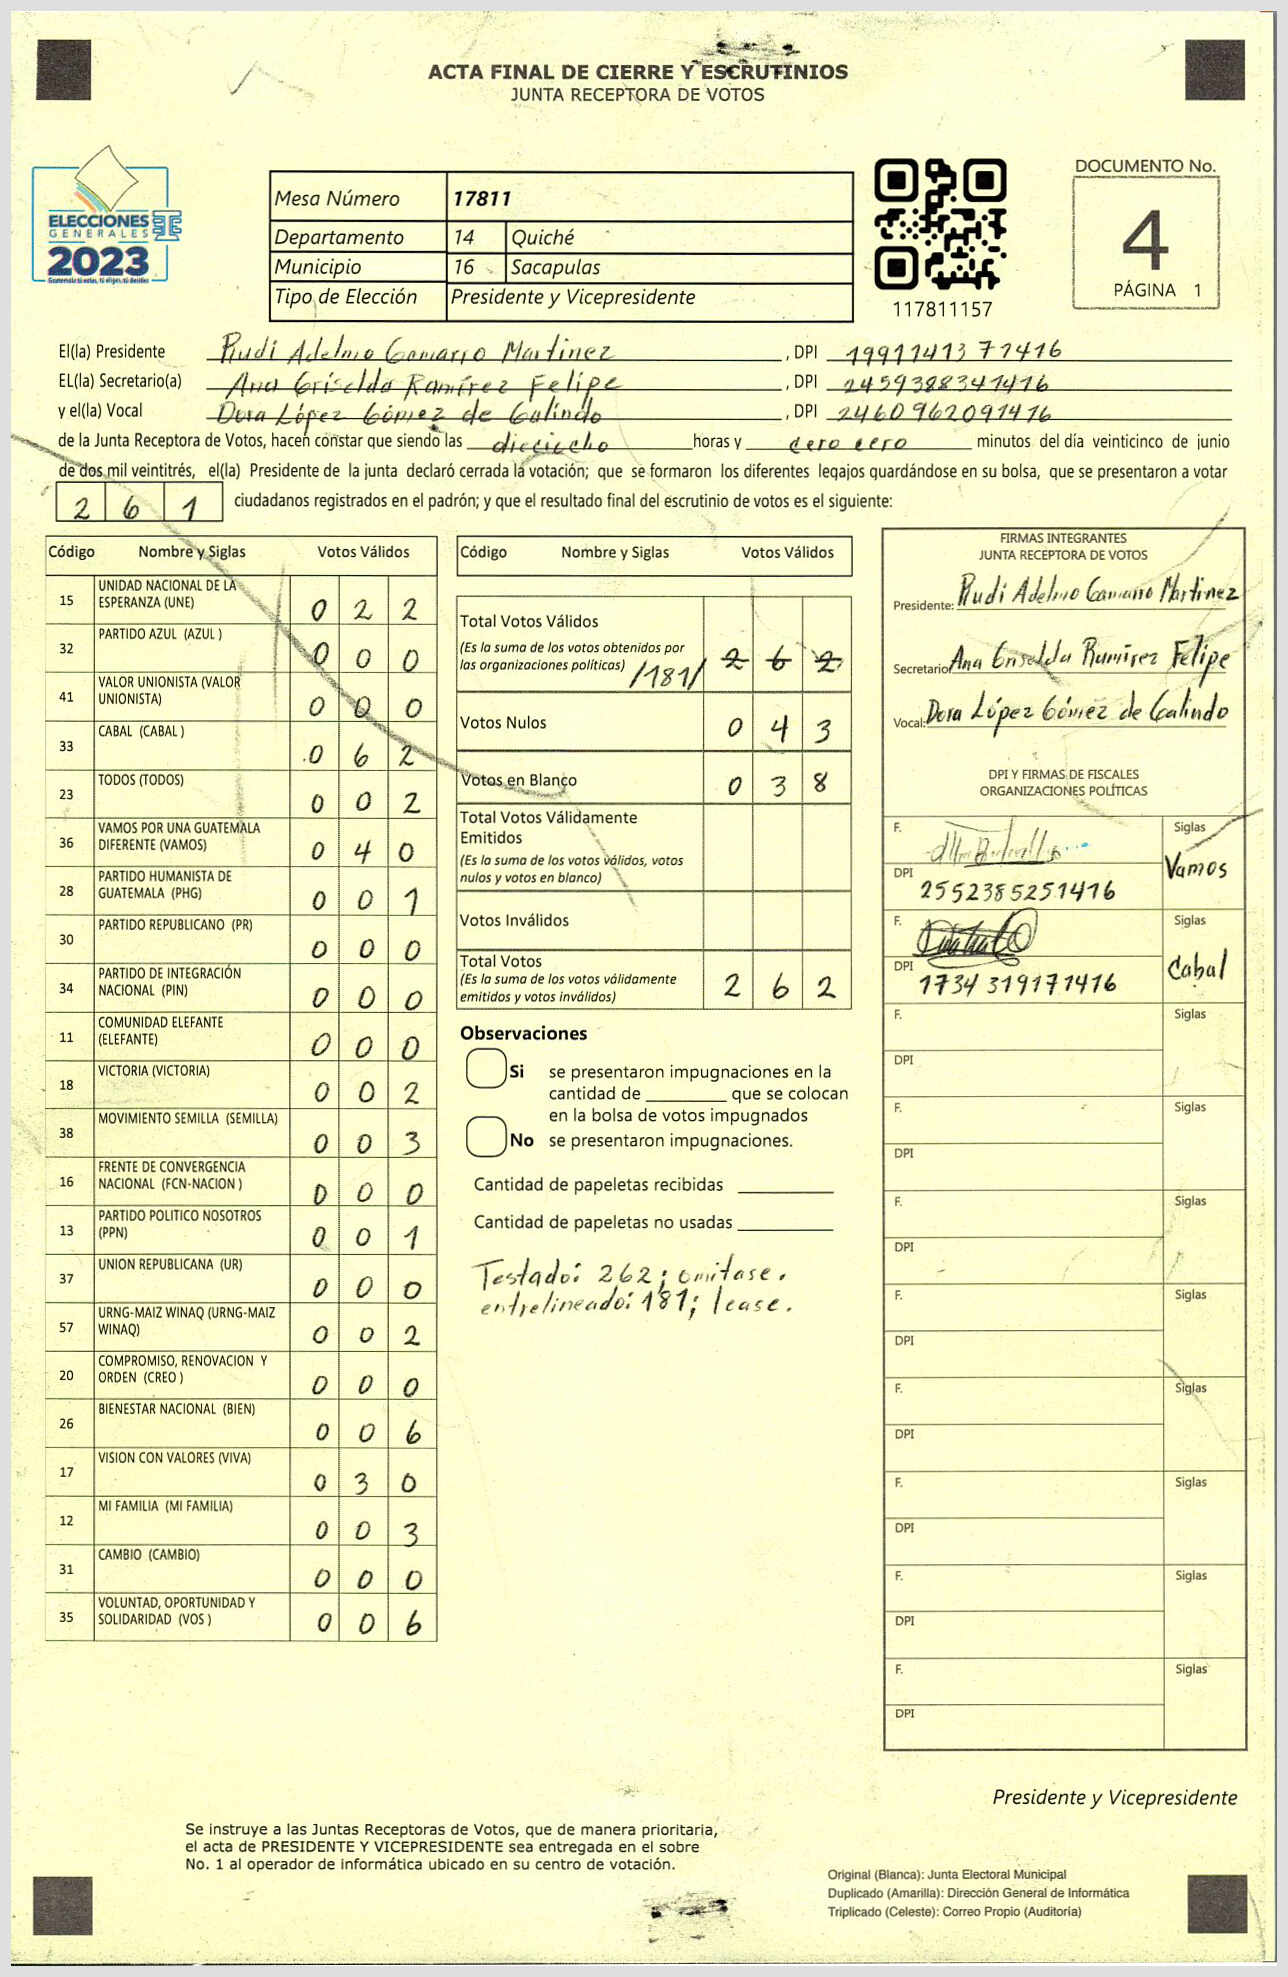 ACTA FINAL DE CIERRE Y ESCRUTINIOS
JUNTA RECEPTORA DE VOTOS
ELECCIONES
GENERALES
2023
Mesa Número 17811
Departamento 14 Quiché
Municipio 16 Sacapulas
Tipo de Elección Presidente y Vicepresidente
117811157
DOCUMENTO No.
4
PÁGINA 1
El(la) Presidente Rudi Adelmo Gamarro Martinez , DPI 1991141371416
EL(la) Secretario(a) Ana Griselda Ramírez Felipe , DPI 2459388341416
y el(la) Vocal Dora López Gómez de Galindo , DPI 2460962091416
de la Junta Receptora de Votos, hacen constar que siendo las dieciocho horas y cero cero minutos del día veinticinco de junio
de dos mil veintitrés, el(la) Presidente de la junta declaró cerrada la votación; que se formaron los diferentes legajos guardándose en su bolsa, que se presentaron a votar
2 6 1 ciudadanos registrados en el padrón; y que el resultado final del escrutinio de votos es el siguiente:
Código Nombre y Siglas Votos Válidos
15 UNIDAD NACIONAL DE LA
ESPERANZA (UNE) 0 2 2
32 PARTIDO AZUL (AZUL ) 0 0 0
41 VALOR UNIONISTA (VALOR
UNIONISTA) 0 0 0
33 CABAL (CABAL ) 0 6 2
23 TODOS (TODOS) 0 0 2
36 VAMOS POR UNA GUATEMALA
DIFERENTE (VAMOS) 0 4 0
28 PARTIDO HUMANISTA DE
GUATEMALA (PHG) 0 0 1
30 PARTIDO REPUBLICANO (PR) 0 0 0
34 PARTIDO DE INTEGRACIÓN
NACIONAL (PIN) 0 0 0
11 COMUNIDAD ELEFANTE
(ELEFANTE) 0 0 0
18 VICTORIA (VICTORIA) 0 0 2
38 MOVIMIENTO SEMILLA (SEMILLA) 0 0 3
16 FRENTE DE CONVERGENCIA
NACIONAL (FCN-NACION ) 0 0 0
13 PARTIDO POLITICO NOSOTROS
(PPN) 0 0 1
37 UNION REPUBLICANA (UR) 0 0 0
57 URNG-MAIZ WINAQ (URNG-MAIZ
WINAQ) 0 0 2
20 COMPROMISO, RENOVACION Y
ORDEN (CREO ) 0 0 0
26 BIENESTAR NACIONAL (BIEN) 0 0 6
17 VISION CON VALORES (VIVA) 0 3 0
12 MI FAMILIA (MI FAMILIA) 0 0 3
31 CAMBIO (CAMBIO) 0 0 0
35 VOLUNTAD, OPORTUNIDAD Y
SOLIDARIDAD (VOS ) 0 0 6
Código Nombre y Siglas Votos Válidos
Total Votos Válidos
(Es la suma de los votos obtenidos por
las organizaciones políticas) /181/ 2 6 2
Votos Nulos 0 4 3
Votos en Blanco 0 3 8
Total Votos Válidamente
Emitidos
(Es la suma de los votos válidos, votos
nulos y votos en blanco)
Votos Inválidos
Total Votos
(Es la suma de los votos válidamente
emitidos y votos inválidos) 2 6 2
Observaciones
Si se presentaron impugnaciones en la
cantidad de ________ que se colocan
en la bolsa de votos impugnados
No se presentaron impugnaciones.
Cantidad de papeletas recibidas
Cantidad de papeletas no usadas
Testado: 262; omitase.
entrelineado: 181; lease.
FIRMAS INTEGRANTES
JUNTA RECEPTORA DE VOTOS
Presidente: Rudi Adelmo Gamarro Martinez
Secretario Ana Griselda Ramírez Felipe
Vocal: Dora López Gómez de Galindo
DPI Y FIRMAS DE FISCALES
ORGANIZACIONES POLÍTICAS
F. Siglas
Vamos
DPI
2552385251416
F. Siglas
Cabal
DPI
1734319171416
F. Siglas
DPI
F. Siglas
DPI
F. Siglas
DPI
F. Siglas
DPI
F. Siglas
DPI
F. Siglas
DPI
F. Siglas
DPI
F. Siglas
DPI
Presidente y Vicepresidente
Se instruye a las Juntas Receptoras de Votos, que de manera prioritaria,
el acta de PRESIDENTE Y VICEPRESIDENTE sea entregada en el sobre
No. 1 al operador de informática ubicado en su centro de votación.
Original (Blanca): Junta Electoral Municipal
Duplicado (Amarilla): Dirección General de Informática
Triplicado (Celeste): Correo Propio (Auditoría)